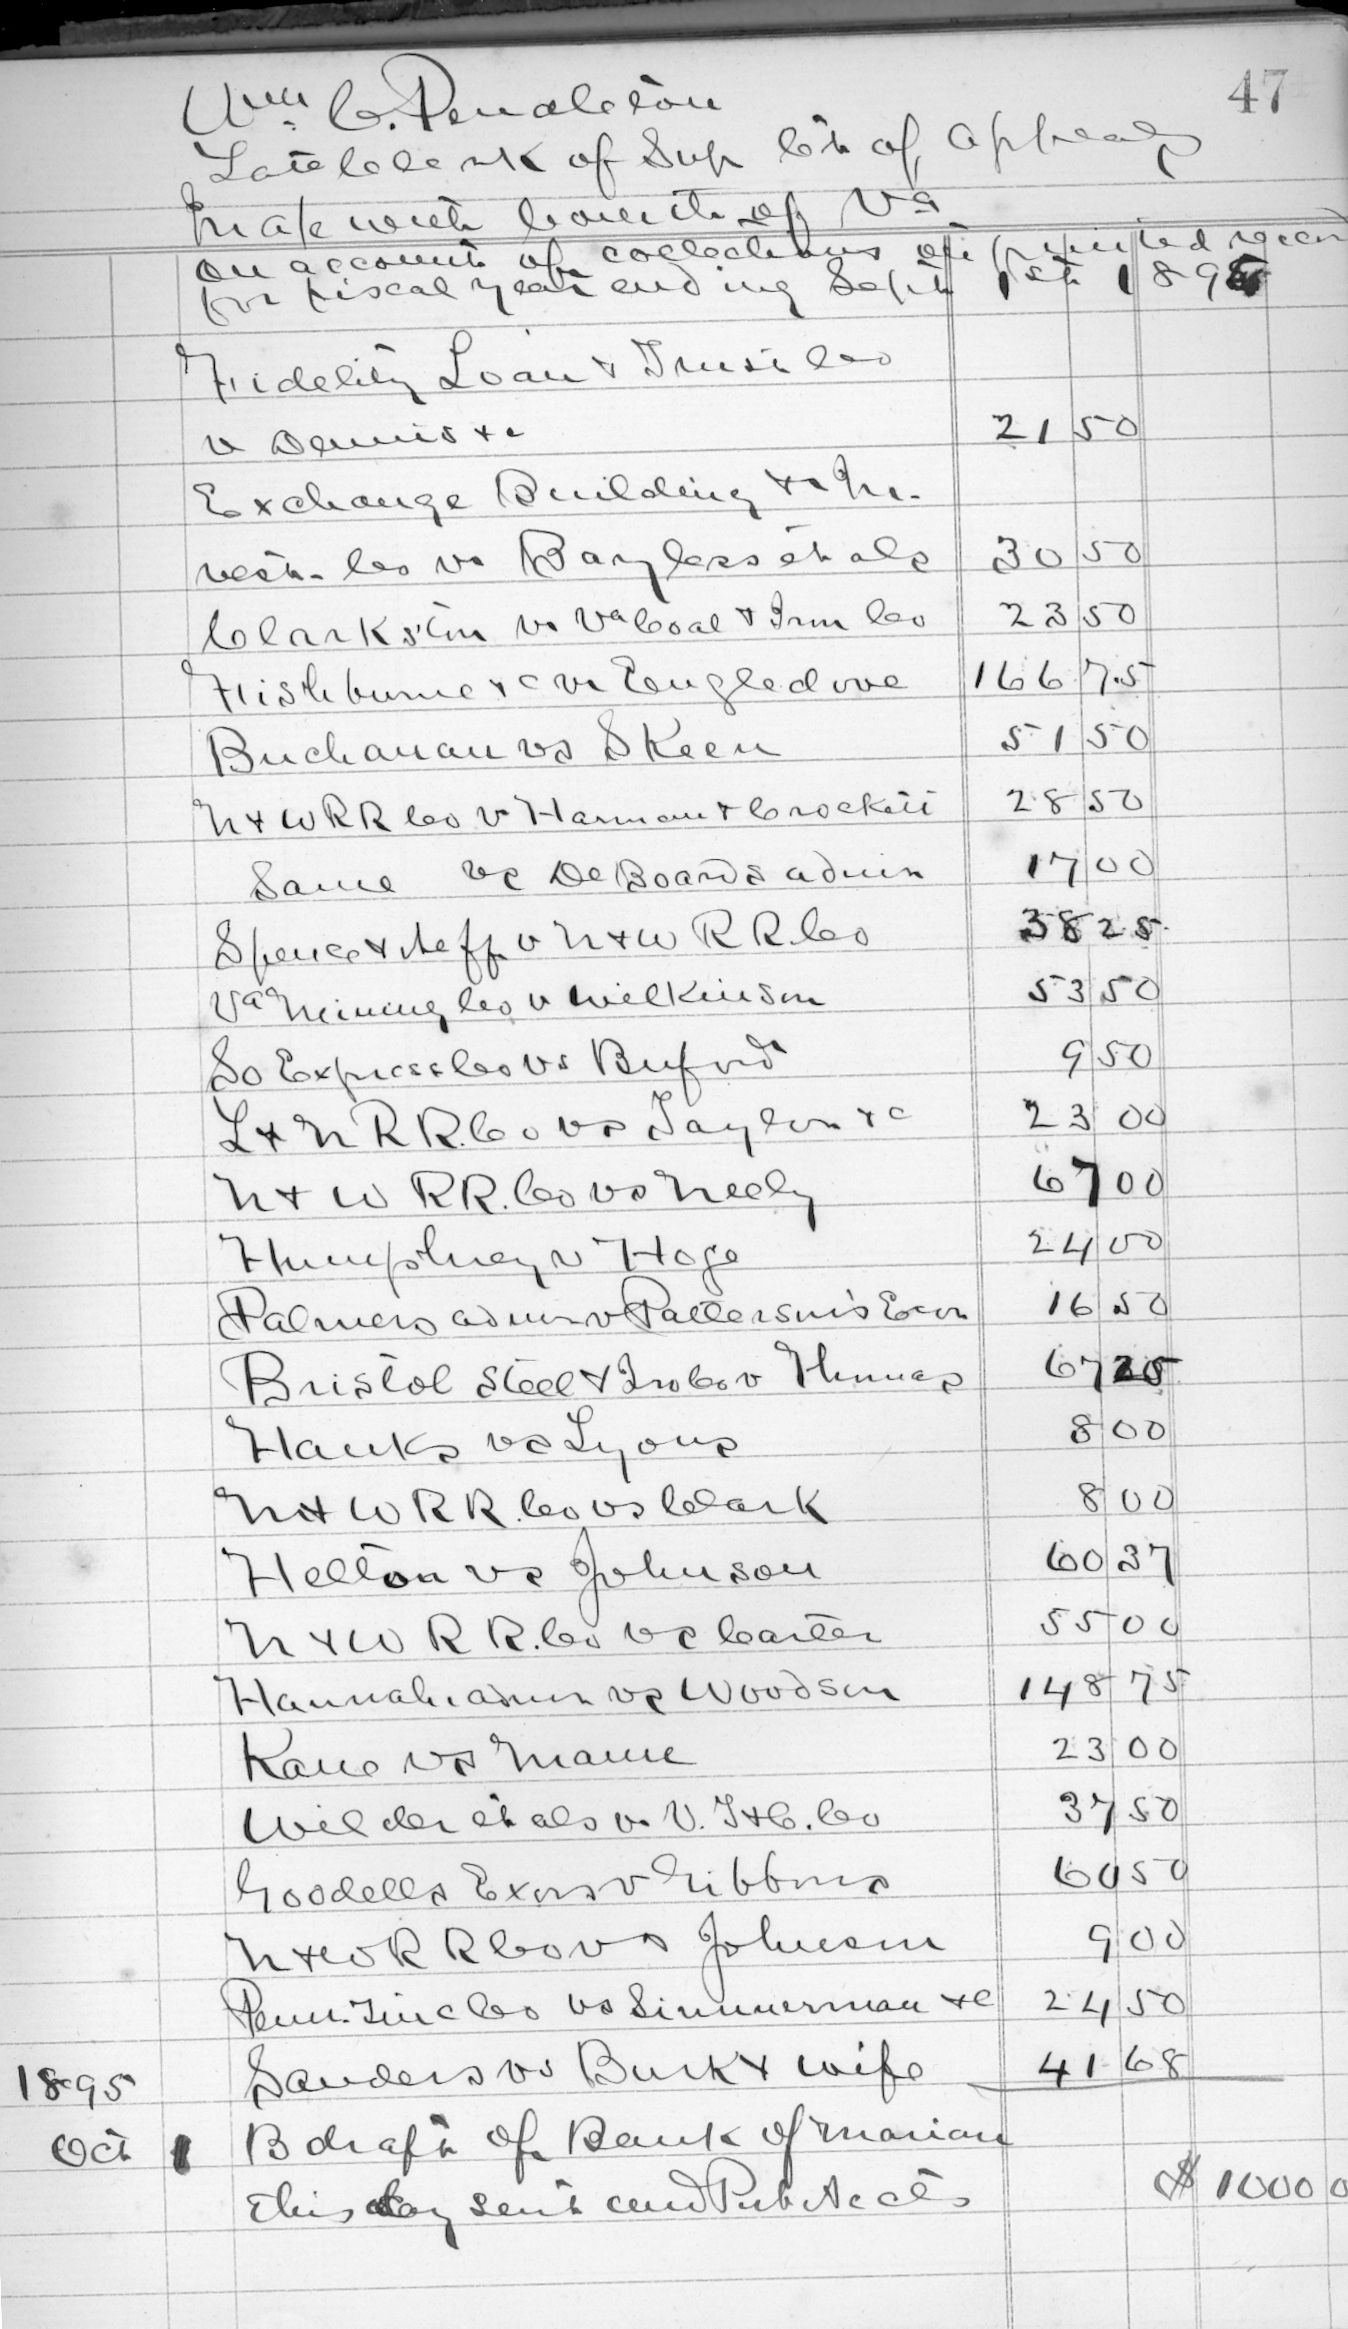 47
Wm. C. Pendleton
Late Clerk of Sup Ct of Appeals
In a/c with Comth of Va
on account of collections on printed recor
for fiscal year ending Sept 1st 1895
Fidelity Loan & Trust Co
v Dennis &c 21 50
Exchange Building &c In-
vest. Co vs Bayless et als 30 50
Clarkston vs Va Coal & Iron Co 23 50
Fishburne &c vs Engledove 166 75
Buchanan vs SKeen 51 50
N & W R R Co v Harman & Crockett 28 50
Same vs DeBoards admr 17 00
Spence & Neff v N & W R R. Co 38 25
Va Mining Co v Wilkinson 53 50
So Express Co vs Buford 9 50
L & N R R. Co vs Taylor &c 23 00
N & W R R. Co vs Neely 67 00
Humphrey v Hoge 24 00
Palmers admr v Patterson's Exor 16 50
Bristol Steel & Iro Co v Thomas 67 25
Hanks vs Lyons 8 00
N & W R R. Co vs Clark 8 00
Helton vs Johnson 60 37
N & W R R. Co vs Carter 55 00
Hannah admr vs Woodson 148 75
Kane vs Mann 23 00
Wilder et als v. V. I & C. Co 37 50
Goodells Exors v Gibbons 60 50
N & W R R Co vs Johnson 9 00
Penn. Zinc Co vs Simmerman &c 24 50
Sanders vs Burk & wife 41 68
1895
Oct 1 B draft of Bank of Marian
this day sent and Pub Accts $ 1000 0